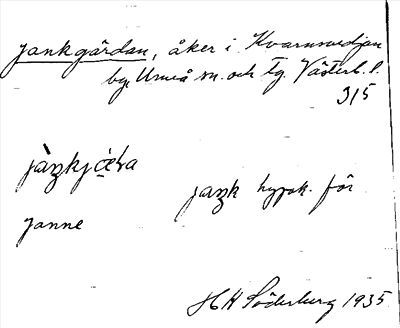 Jankgärdan, åker i Kvarnsvedjan
by, Umeå sn. och tg. Västerb. l.
315
jaŋk hypok. för
Janne
H H Söderberg 1935